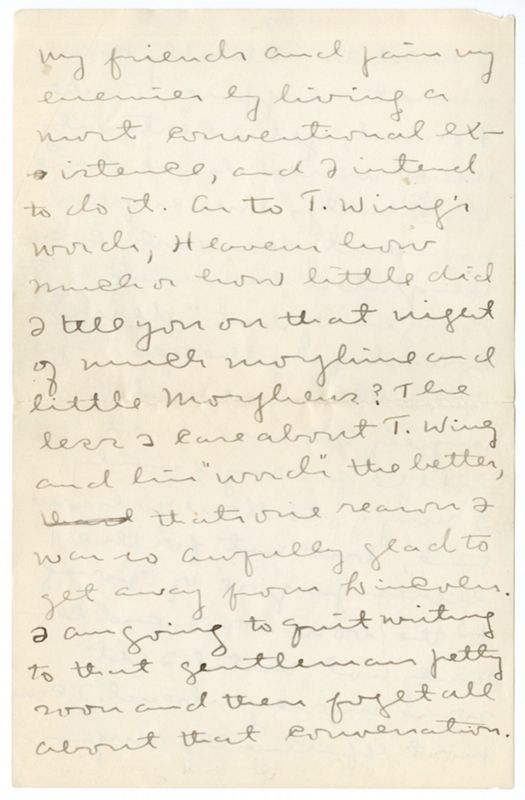 my friends and pain my
enemies by living a
most conventional ex-
istence, and I intend
to do it. As to T. Wing's
words, Heavens how
much or how little did
I tell you on that night
of much morphine and
little Morpheus? The
less I care about T. Wing
and his "words" the better,
thats one reason I
was so awfully glad to
get away from Lincoln.
I am going to quit writing
to that gentleman petty
soon and then foget all
about that convenation.